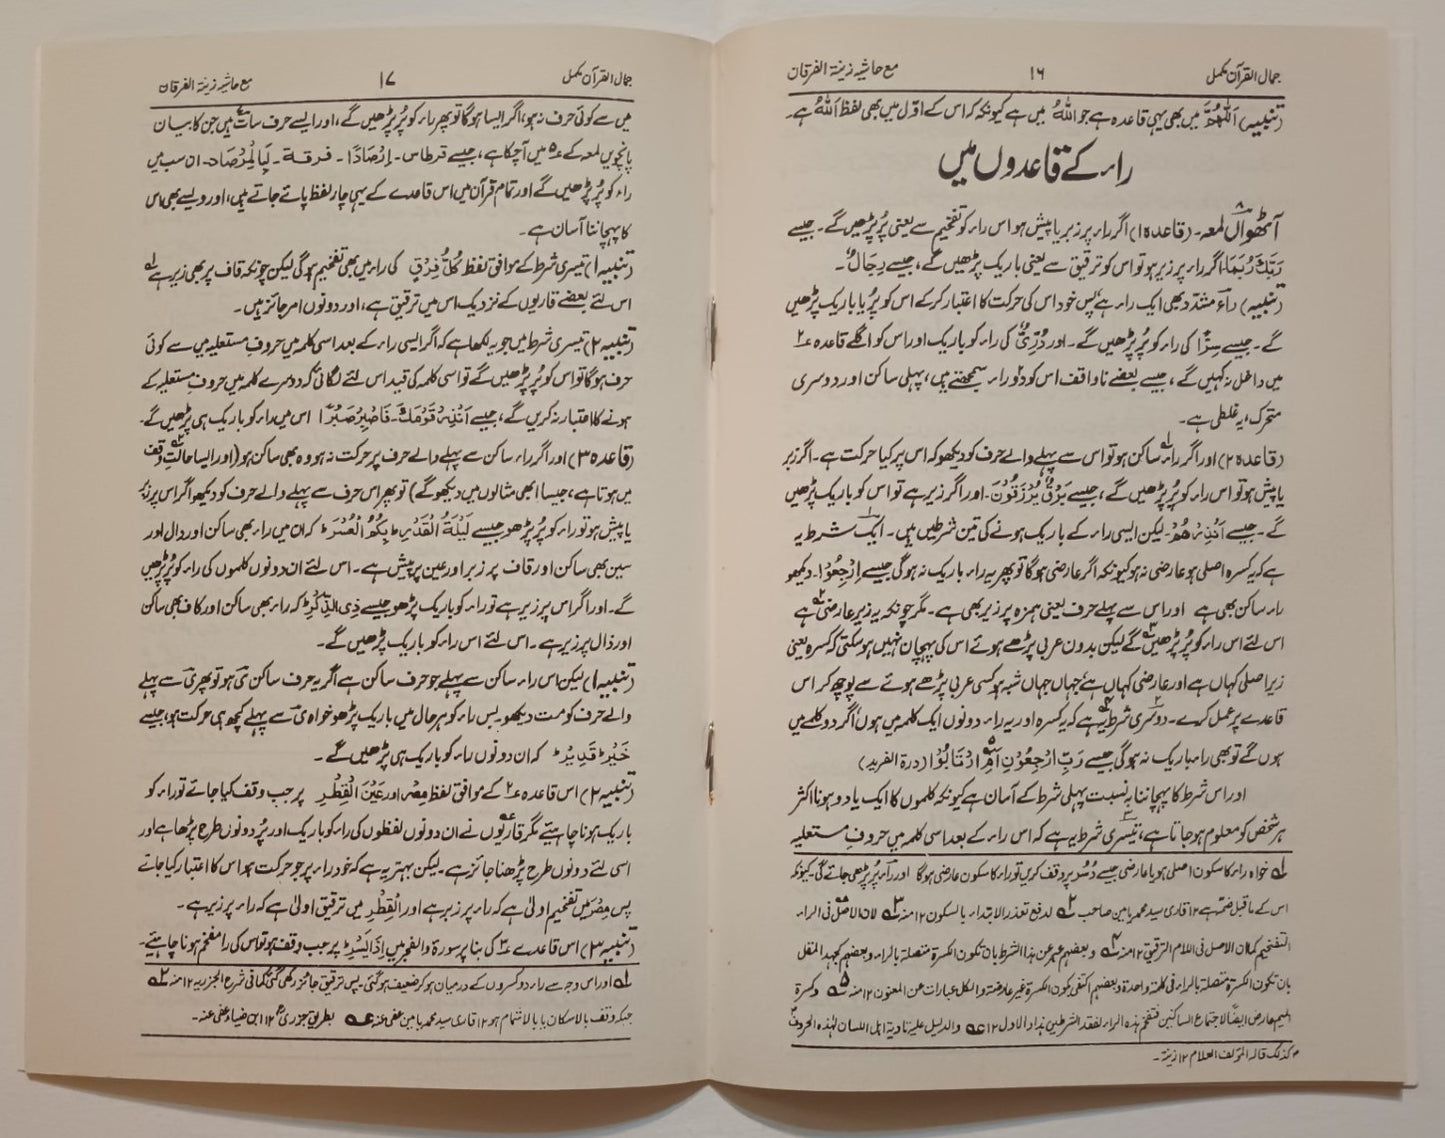 جمال القرآن مکمل ۱۶ مع حاشیہ زینۃ الفرقان
(تنبیہ) اَللّٰھُمَّ میں بھی یہی قاعدہ ہے جو اللّٰہُ میں ہے کیونکہ اس کے اول میں بھی لفظ اللّٰہُ ہے۔
راء کے قاعدوں میں
آٹھواں ۸ لمعہ۔ (قاعدہ ۱) اگر راء پر زبر یا پیش ہو اس راء کو تفخیم سے یعنی پُر پڑھیں گے۔ جیسے
رَبُّكَ رُبَمَا، اگر راء پر زیر ہو تو اس کو ترقیق سے یعنی باریک پڑھیں گے، جیسے رِجَالٌ۔
(تنبیہ) راء مشدد بھی ایک راء ہے پس خود اس کی حرکت کا اعتبار کر کے اس کو پُر یا باریک پڑھیں
گے۔ جیسے سِرًّا کی راء کو پُر پڑھیں گے۔ اور دُرِّیٌّ کی راء کو باریک اور اس کو اگلے قاعدہ ۲
میں داخل نہ کہیں گے، جیسے بعضے ناواقف اس کو دو راء سمجھتے ہیں، پہلی ساکن اور دوسری
متحرک، یہ غلطی ہے۔
(قاعدہ ۲) اور اگر راء ساکن ہو تو اس سے پہلے والے حرف کو دیکھو کہ اس پر کیا حرکت ہے۔ اگر زبر
یا پیش ہو تو اس راء کو پُر پڑھیں گے، جیسے بَرْقٌ یُرْزَقُوْنَ۔ اور اگر زیر ہے تو اس کو باریک پڑھیں
گے۔ جیسے اَنْذِرْھُمْ۔ لیکن ایسی راء کے باریک ہونے کی تین شرطیں ہیں۔ ایک شرط یہ
ہے کہ یہ کسرہ اصلی ہو عارضی نہ ہو کیونکہ اگر عارضی ہوگا تو پھر یہ راء باریک نہ ہوگی جیسے اِرْجِعُوْا۔ دیکھو
راء ساکن بھی ہے اور اس سے پہلے حرف یعنی ہمزہ پر زیر بھی ہے۔ مگر چونکہ یہ زیر عارضی ہے
اس لئے اس راء کو پُر پڑھیں گے لیکن بدون عربی پڑھے ہوئے اس کی پہچان نہیں ہو سکتی کہ کسرہ یعنی
زیر اصلی کہاں ہے اور عارضی کہاں ہے جہاں جہاں شبہ ہو کسی عربی پڑھے ہوئے سے پوچھ کر اس
قاعدے پر عمل کرے۔ دوسری شرط یہ ہے کہ یہ کسرہ اور یہ راء دونوں ایک کلمہ میں ہوں، اگر دو کلمے میں
ہوں گے تو بھی راء باریک نہ ہوگی جیسے رَبِّ ارْجِعُوْنِ اَمِ ارْتَابُوْا (درۃ الفرید)
اور اس شرط کا پہچاننا بہ نسبت پہلی شرط کے آسان ہے کیونکہ کلموں کا ایک یا دو ہونا اکثر
ہر شخص کو معلوم ہو جاتا ہے، تیسری شرط یہ ہے کہ اس راء کے بعد اسی کلمہ میں حروفِ مستعلیہ
۱؎ خواہ راء کا سکون اصلی ہو یا عارضی جیسے دُسُر پر وقف کریں تو راء کا سکون عارضی ہوگا اور راء پُر پڑھی جائے گی۔ کیونکہ
اس کے ماقبل ضمہ ہے ۱۲ قاری سید محمد یامین صاحب ۲؎ لدفع تعذر الابتداء بالسکون ۱۲ منہ ۳؎ لان الاصل فی الراء
التفخیم کما ان الاصل فی اللام الترقیق ۱۲ منہ ۴؎ وبعضہم عبر عن ہذا الشرط بان تکون الکسرۃ متصلۃ بالراء وبعضہم
بان تکون الکسرۃ متصلۃ بالراء فی کلمۃ واحدۃ وبعضہم اکتفی بکون الکسرۃ غیر عارضۃ والکل عبارات عن المعنون ۱۲ منہ ۵؎ وکسرۃ
المیم عارض ایضًا لاجتماع الساکنین فتفخم ہذہ الراء لفقد الشرطین
کذلک قالہ المؤلف العلام ۱۲ زینۃ۔
جمال القرآن مکمل ۱۷ مع حاشیہ زینۃ الفرقان
میں سے کوئی حرف نہ ہو، اگر ایسا ہوگا تو پھر راء کو پُر پڑھیں گے، اور ایسے حرف سات ہیں جن کا بیان
پانچویں لمعہ کے ۵ میں آچکا ہے، جیسے قرطاس۔ اِرْصَادًا۔ فرقۃ۔ لَبِالْمِرْصَاد۔ ان سب میں
راء کو پُر پڑھیں گے اور تمام قرآن میں اس قاعدے کے یہی چار لفظ پائے جاتے ہیں، اور ویسے بھی اس
کا پہچاننا آسان ہے۔
(تنبیہ ۱) تیسری شرط کے موافق لفظ كُلُّ فِرْقٍ کی راء میں بھی تفخیم ہوگی لیکن چونکہ قاف پر بھی زیر ہے
اس لئے بعضے قاریوں کے نزدیک اس میں ترقیق ہے، اور دونوں امر جائز ہیں۔
(تنبیہ ۲) تیسری شرط میں جو یہ لکھا ہے کہ اگر ایسی راء کے بعد اسی کلمہ میں حروفِ مستعلیہ میں سے کوئی
حرف ہوگا تو اس کو پُر پڑھیں گے تو اسی کلمہ کی قید اس لئے لگائی کہ دوسرے کلمہ میں حروفِ مستعلیہ کے
ہونے کا اعتبار نہ کریں گے، جیسے اَنْذِرْ قَوْمَكَ۔ فَاصْبِرْ صَبْرًا اس میں راء کو باریک ہی پڑھیں گے۔
(قاعدہ ۳) اور اگر راء ساکن سے پہلے والے حرف پر حرکت نہ ہو وہ بھی ساکن ہو (اور ایسا حالت وقف
میں ہوتا ہے، جیسا ابھی مثالوں میں دیکھو گے) تو پھر اس حرف سے پہلے والے حرف کو دیکھو اگر اس پر زبر
یا پیش ہو تو راء کو پُر پڑھو جیسے لَیْلَةُ الْقَدْرِ، بِكُمُ الْعُسْرَ کہ ان میں راء بھی ساکن اور دال اور
سین بھی ساکن اور قاف پر زبر اور عین پر پیش ہے۔ اس لئے ان دونوں کلموں کی راء کو پُر پڑھیں
گے۔ اور اگر اس پر زیر ہے تو راء کو باریک پڑھو جیسے ذِی الذِّكْرِ کہ راء بھی ساکن اور کاف بھی ساکن
اور ذال پر زیر ہے۔ اس لئے اس راء کو باریک پڑھیں گے۔
(تنبیہ ۱) لیکن اس راء ساکن سے پہلے جو حرف ساکن ہے اگر یہ حرف ساکن ی ہو تو پھر ی سے پہلے
والے حرف کو مت دیکھو۔ بس راء کو ہر حال میں باریک پڑھو خواہ ی سے پہلے کچھ ہی حرکت ہو، جیسے
خَیْرٌ قَدِیْرٌ کہ ان دونوں راء کو باریک ہی پڑھیں گے۔
(تنبیہ ۲) اس قاعدہ ۳ کے موافق لفظ مِصْر اور عَیْنَ الْقِطْرِ پر جب وقف کیا جائے تو راء کو
باریک ہونا چاہیئے مگر قاریوں نے ان دونوں لفظوں کی راء کو باریک اور پُر دونوں طرح پڑھا ہے اور
اسی لئے دونوں طرح پڑھنا جائز ہے۔ لیکن بہتر یہ ہے کہ خود راء پر جو حرکت ہو اس کا اعتبار کیا جائے
پس مِصْرَ میں تفخیم اولیٰ ہے کہ راء پر زبر ہے اور الْقِطْرِ میں ترقیق اولیٰ ہے کہ راء پر زیر ہے۔
(تنبیہ ۳) اس قاعدے ۳ کی بناء پر سورۃ والفجر میں اِذَا یَسْرِ پر جب وقف ہو تو اس کی راء مفخم ہونا چاہیئے۔
۱؎ اور اس وجہ سے راء دو کسروں کے درمیان ہو کر ضعیف ہو گئی۔ پس ترقیق جائز رکھی گئی کما فی شرح الجزریہ ۱۲ منہ ۲؎
جبکہ وقف بالاسکان یا بالاشمام ہو ۱۲ قاری سید محمد یامین عفی عنہ ۳؎ بطریق جزری ۱۲ ابن ضیاء عفی عنہ۔